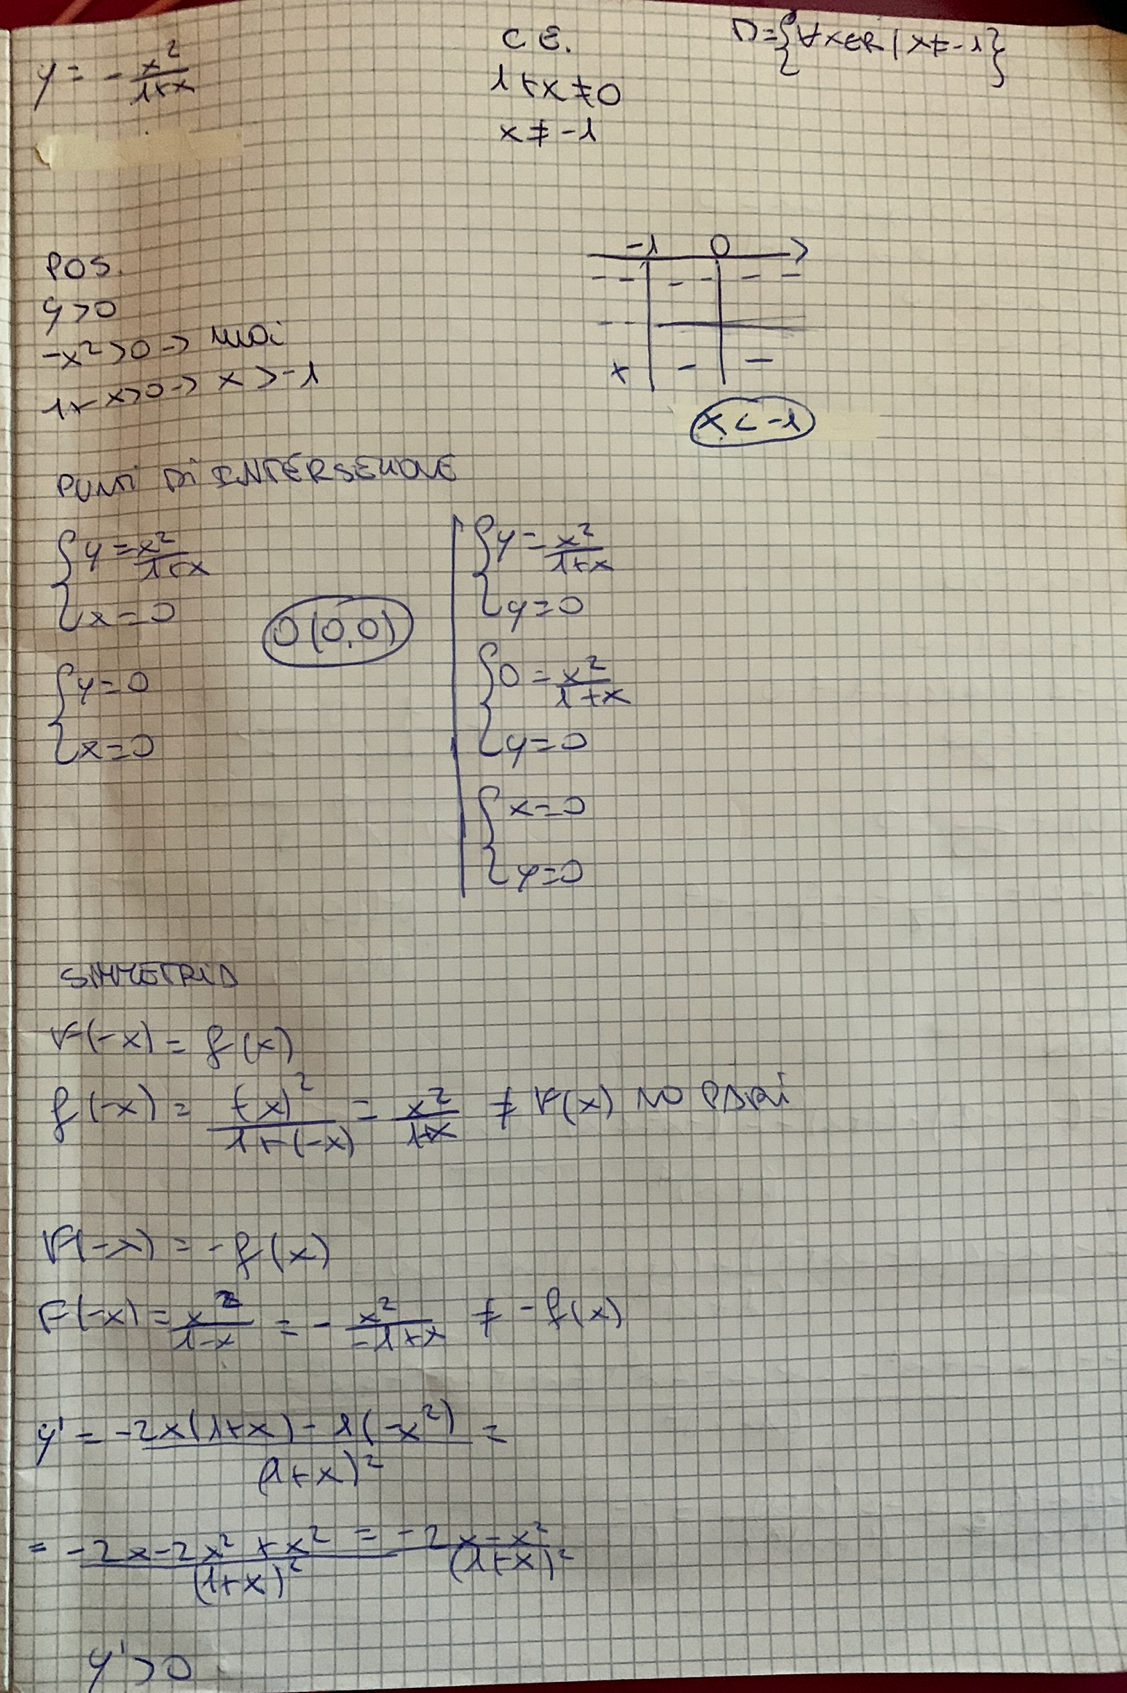 y = - x²/(1+x)
C.E.
1+x≠0
x≠-1
D={∀x∈R | x≠-1}
POS.
y>0
-x²>0 -> MAI
1+x>0 -> x>-1
-1 0
-- -- --
-- 
+ - -
x<-1
PUNTI DI INTERSEZIONE
{y = -x²/(1+x)
{x=0
{y=0
{x=0
O(0,0)
{y = -x²/(1+x)
{y=0
{0 = -x²/(1+x)
{y=0
{x=0
{y=0
SIMMETRIA
F(-x) = f(x)
f(-x) = (-x)²/(1+(-x)) = x²/(1-x) ≠ F(x) NO PARI
F(-x) = -f(x)
F(-x) = x²/(1-x) = - x²/(-1+x) ≠ -f(x)
y' = (-2x(1+x) - 1(-x²))/(1+x)² =
= (-2x-2x²+x²)/(1+x)² = (-2x-x²)/(1+x)²
y'>0